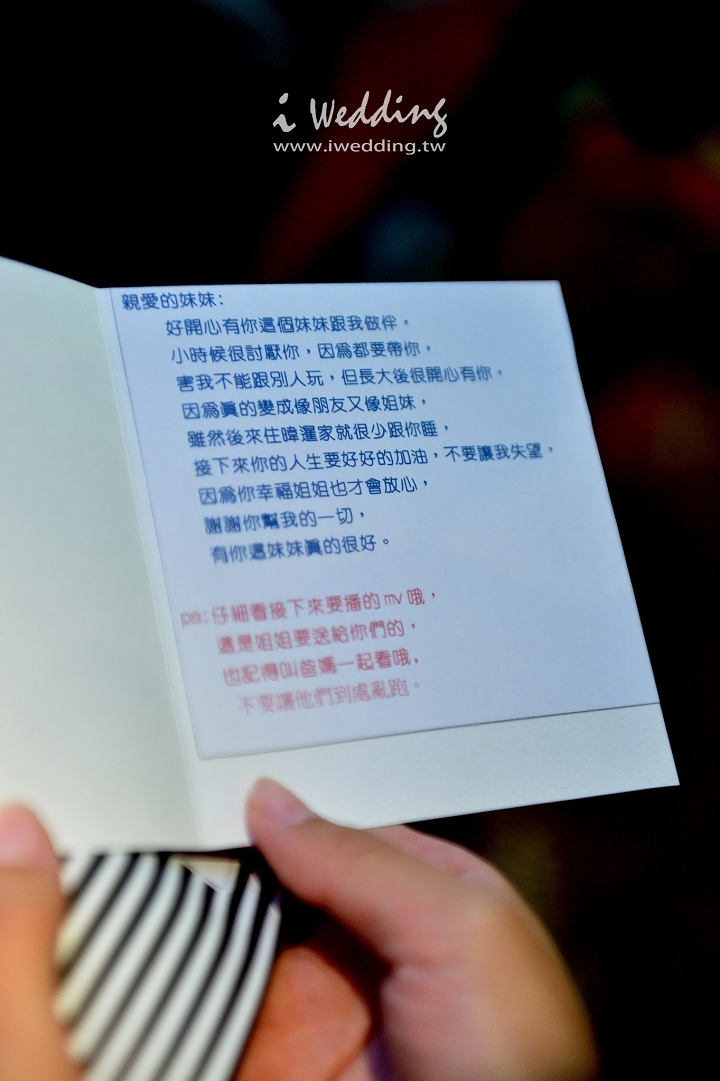 i Wedding
www.iwedding.tw
親愛的妹妹:
好開心有你這個妹妹跟我做伴，
小時候很討厭你，因為都要帶你，
害我不能跟別人玩，但長大後很開心有你，
因為真的變成像朋友又像姐妹，
雖然後來住暐暹家就很少跟你睡，
接下來你的人生要好好的加油，不要讓我失望，
因為你幸福姐姐也才會放心，
謝謝你幫我的一切，
有你這妹妹真的很好。
ps:仔細看接下來要播的mv哦，
這是姐姐要送給你們的，
也記得叫爸媽一起看哦，
不要讓他們到處亂跑。